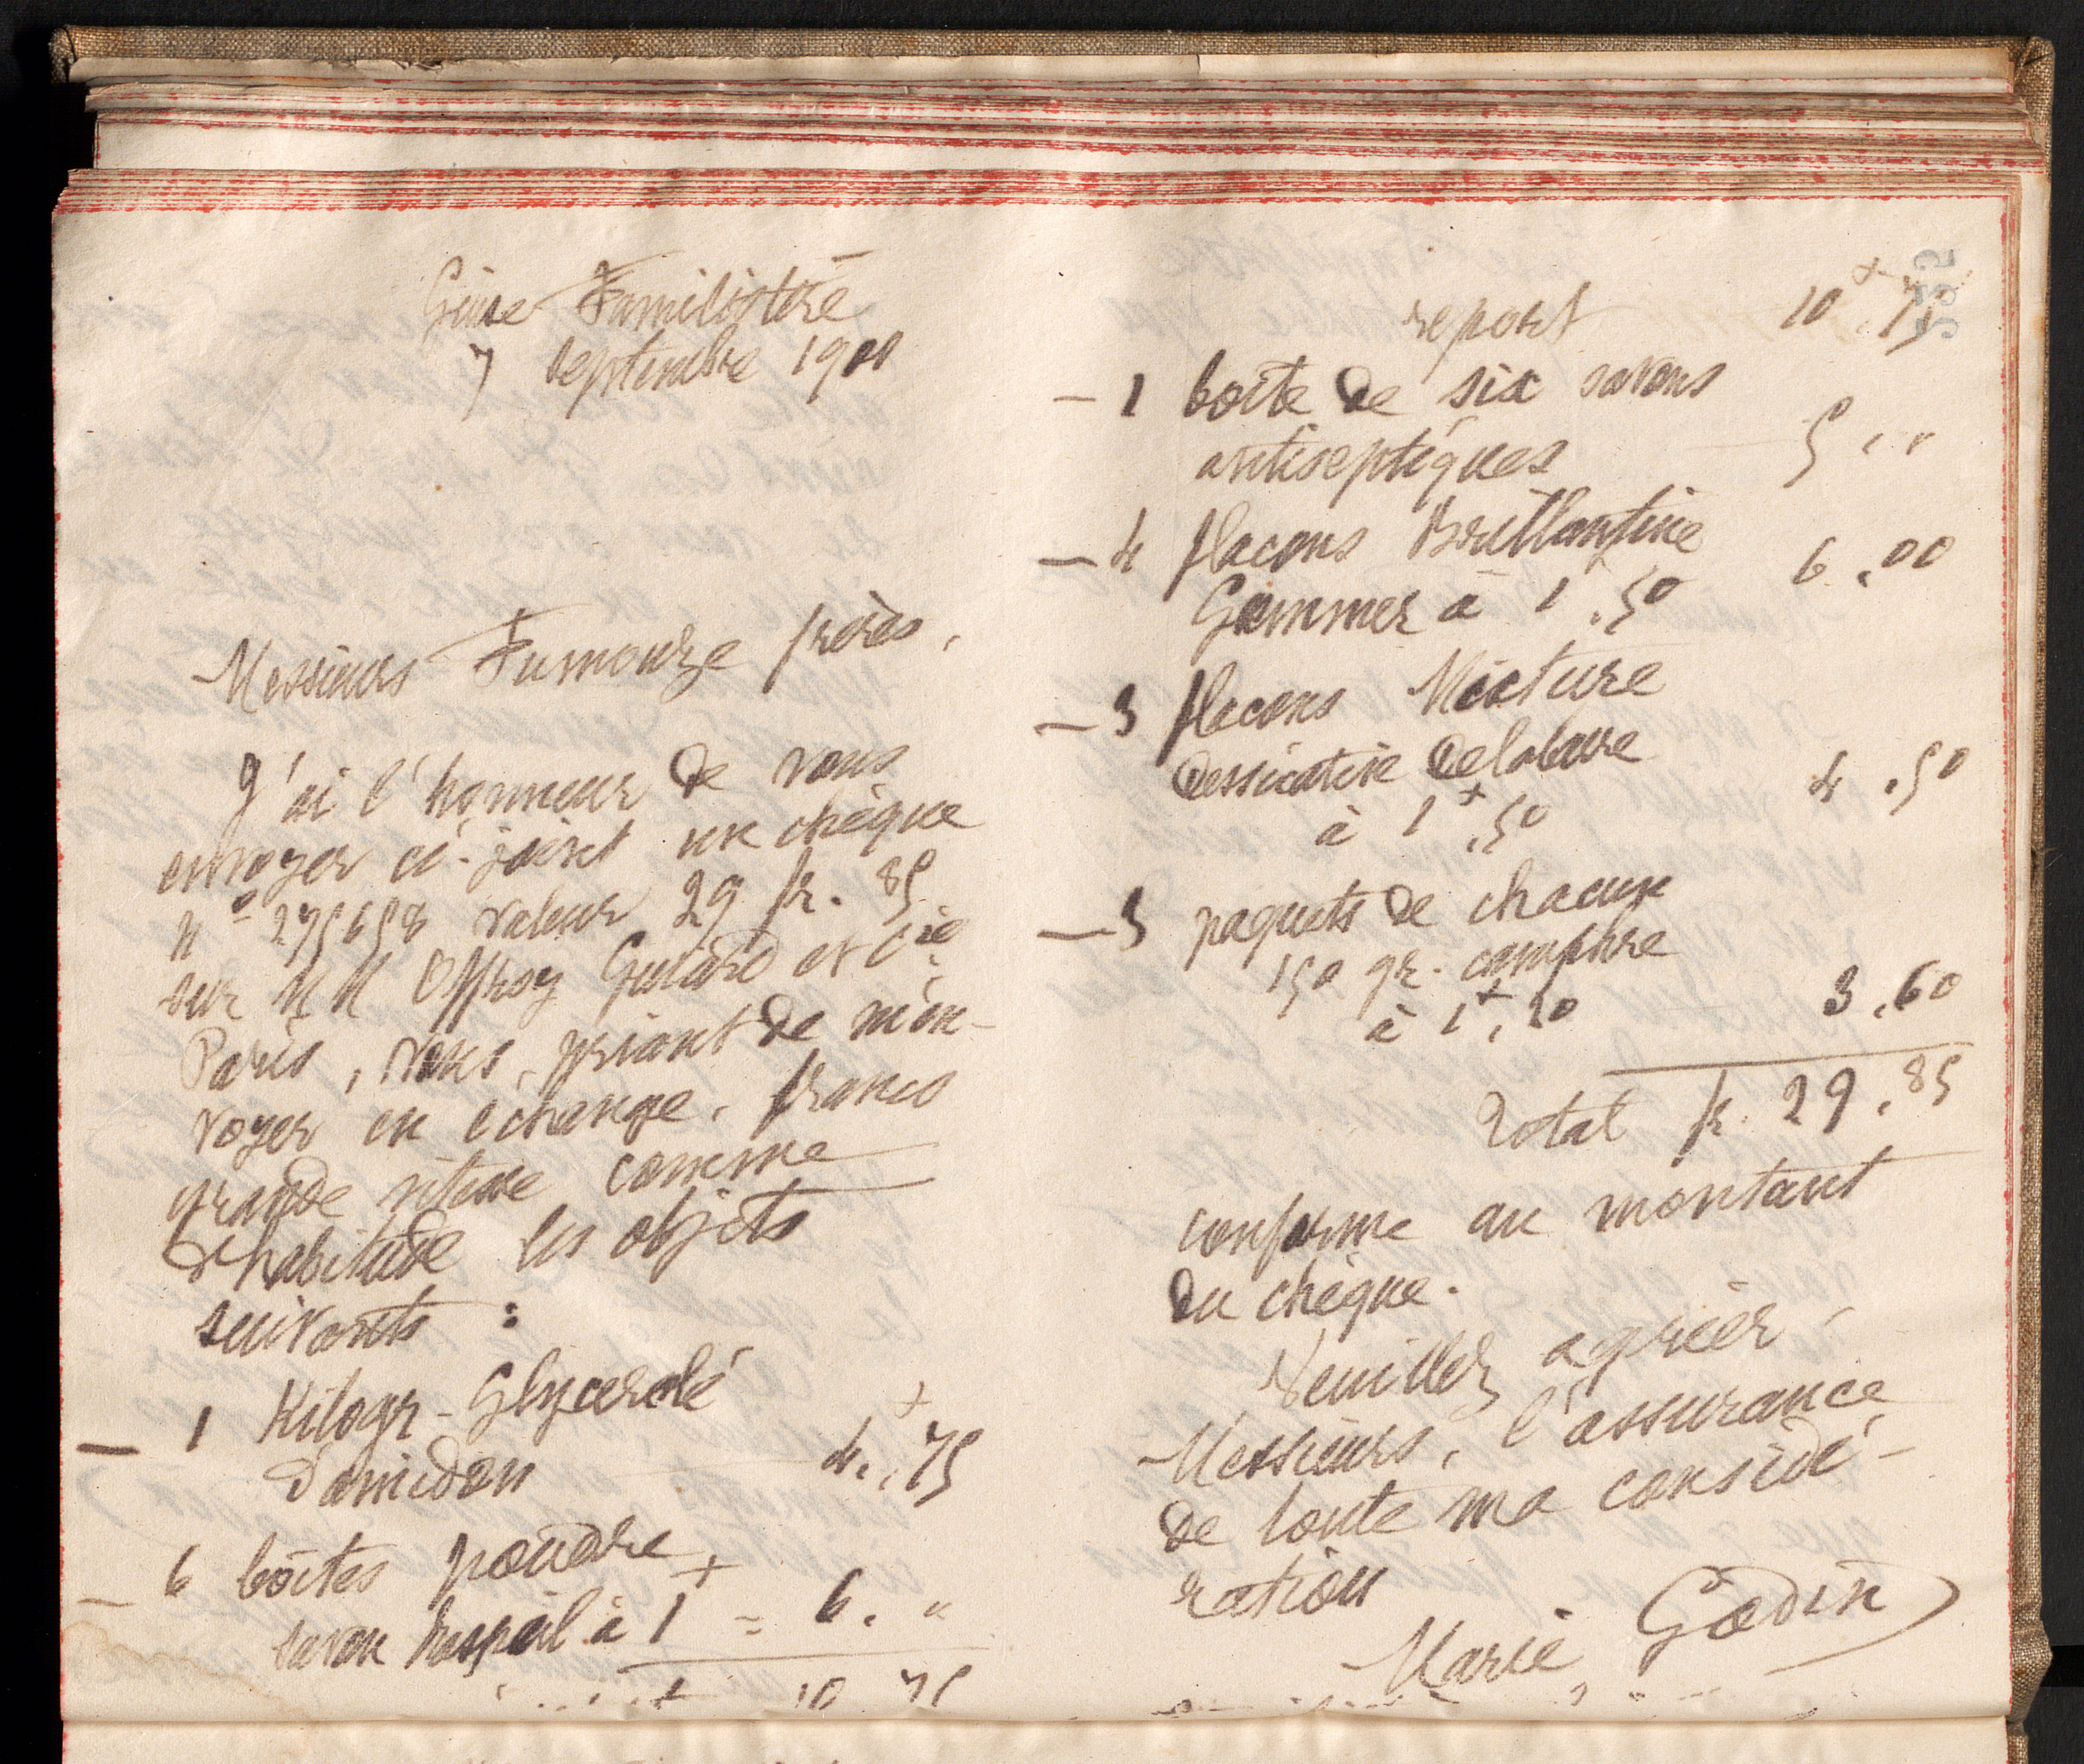 Guise Familistère
7 septembre 1900
Messieurs Fumouze frères,
J'ai l'honneur de vous
envoyer ci-joint un chèque
N° 275658 valeur 29 fr. 85
sur MM Offroy Guiard et Cie
Paris, vous priant de m'en-
voyer en échange, franco
grande vitesse comme
d'habitude les objets
suivants :
— 1 Kilogr. Glycérolé
d'amidon 4.,75
— 6 boîtes poudre
savon Raspail à 1 = 6. "
10 75
report 10.75
— 1 boîte de six savons
antiseptiques 5 , "
— 4 flacons Brillantine
Gommer à 1.50 6.00
— 3 flacons Mixture
dessicative Delabarre
à 1.50 4.50
— 3 paquets de chacun
150 gr. camphre
à 1,20 3.60
Total fr. 29.85
conforme au montant
du chèque.
Veuillez agréer,
Messieurs, l'assurance
de toute ma considé-
ration
Marie Godin
552